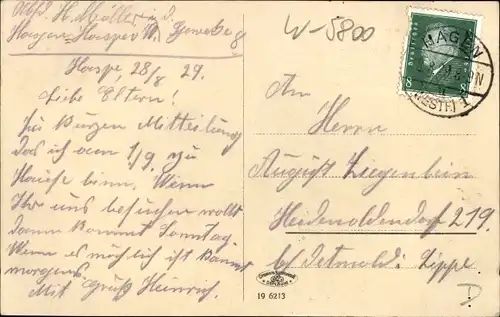 Absd H. Müller i. d.
Hagen=Haspe W. Gewerbe 8
W-5800
Haspe, 28/8 29.
Liebe Eltern!
Zu Burzen Mitteilung
das ich am 1/9. zu
Hause binn. Wenn
Ihr uns besuchen wollt
dann Bommt Sonntag.
Wenn es möchlich ist Bannt
morgens.
Mit Grüß Heinrich.
HAGEN
(WESTF) 1
Deutsches
8 8
An
Herrn
August Ziegenbein
Heidenoldendorf 219.
b/ Detmold. Lippe
19 6213
D